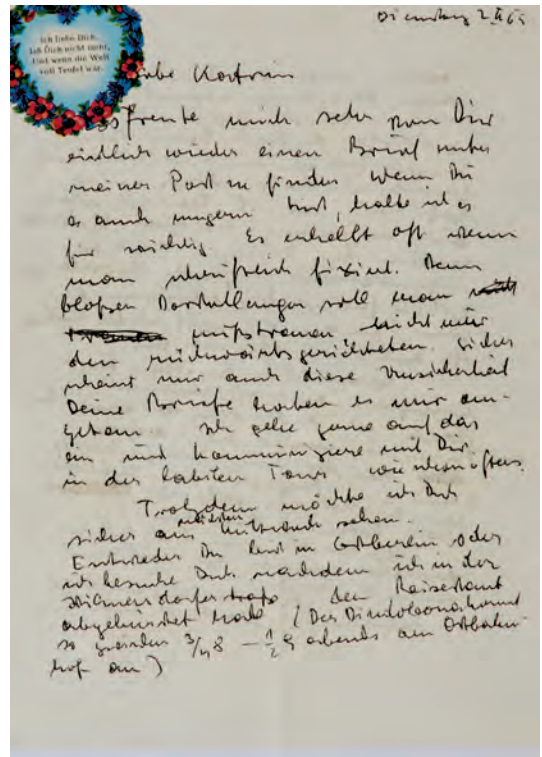 Ich liebe Dich.
Lieb Dich nicht nicht,
Und wenn die Welt
voll Teufel wär.
Dienstag 2
Liebe Katrin
es freute mich sehr von Dir
endlich wieder einen Brief unter
meiner Post zu finden Wenn Du
es auch ungern tust, halte ich es
für wichtig Es erhellt oft wenn
man schriftlich fixiert. Denn
bloßen Darstellungen soll man
mißtrauen nicht nur
den rückwärtsgerichteten. Sicher
scheint mir auch diese Unsicherheit
Deine Briefe haben es mir an-
getan. Ich gehe gerne auf das
ein und kommuniziere mit Dir
in der Tour wie schon öfters.
Trotzdem möchte ich Dich
sicher am nächsten Mittwoch sehen.
Entweder Du bist in Ostberlin oder
ich besuche Dich nachdem ich in der
straße den
abgeholt habe (Der kommt
so zwischen 3/4 8 – 1/2 9 abends am Ostbahn-
hof an)